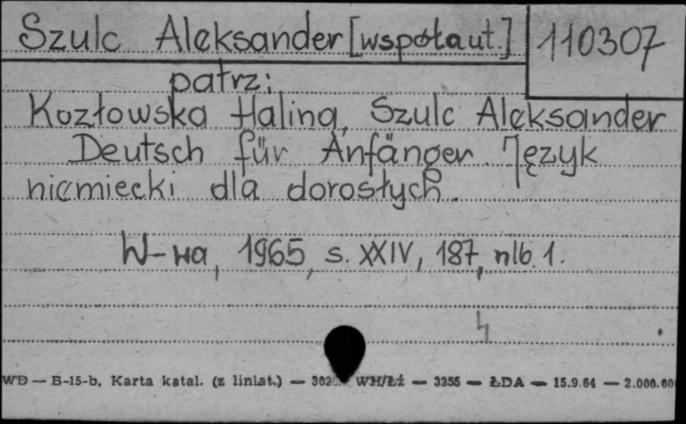 Szulc Aleksander [współaut.] 110307
patrz:
Kozłowska Halina, Szulc Aleksander
Deutsch für Anfänger. Język
niemiecki dla dorosłych.
W-wa, 1965, s. XXIV, 187, nlb. 1.
WD — B-15-b. Karta katal. (z liniat.) — WH/Łź — 3255 — ŁDA — 15.9.64 —